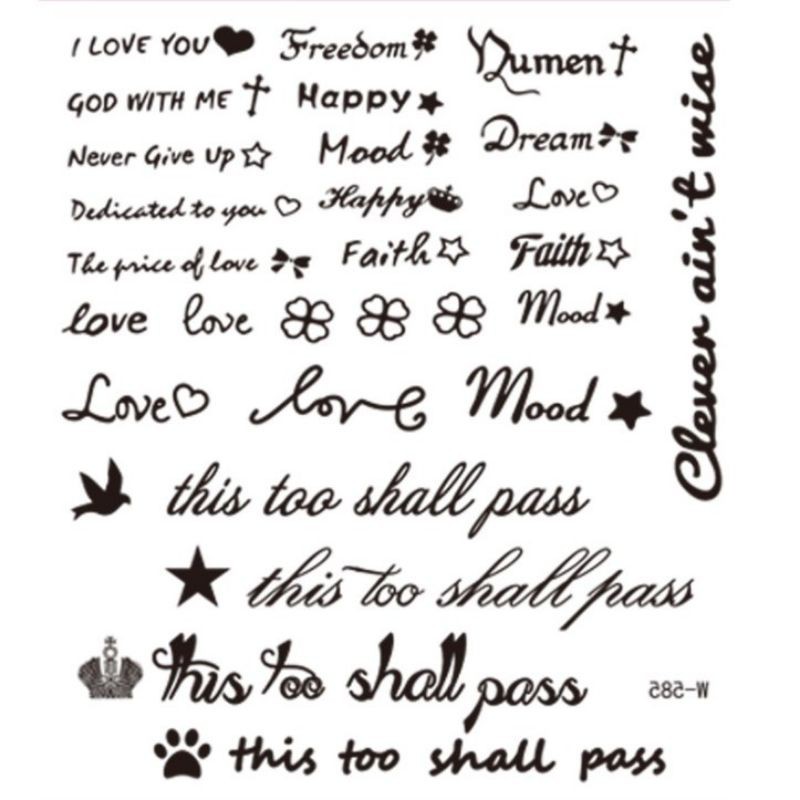 I LOVE YOU
Freedom
Numen
GOD WITH ME
Happy
Never Give Up
Mood
Dream
Dedicated to you
Happy
Love
The price of love
Faith
Faith
love
love
Mood
Love
love
Mood
Clever ain't wise
this too shall pass
this too shall pass
this too shall pass
W-585
this too shall pass